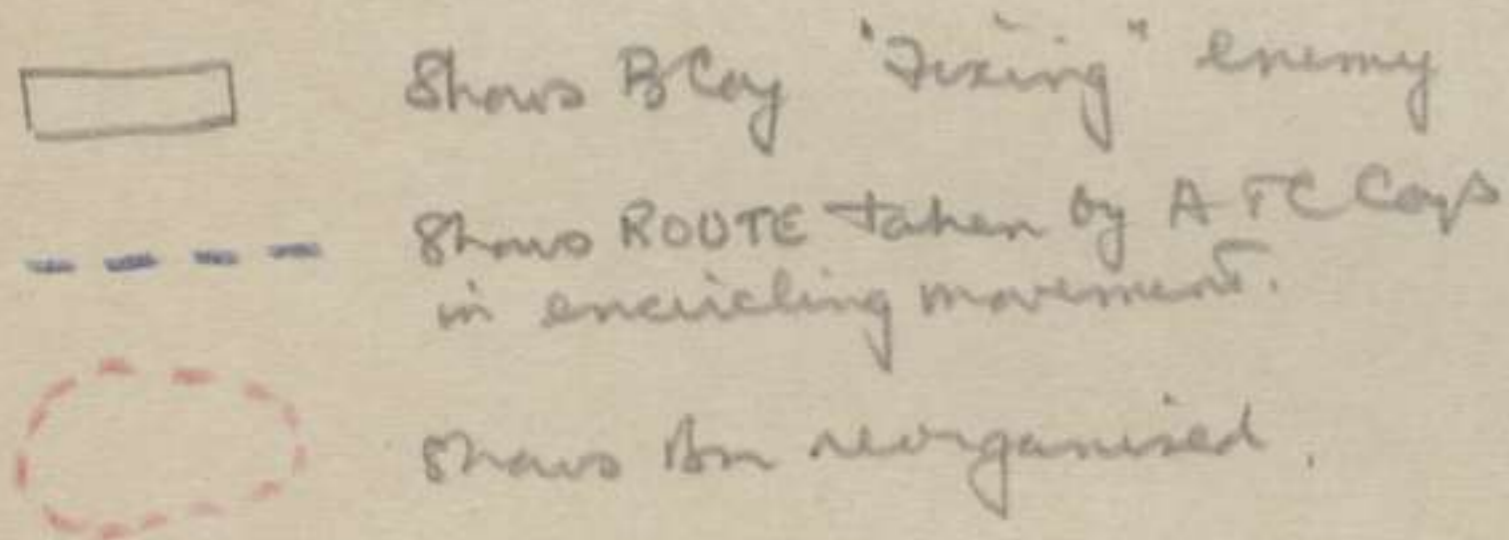 Shows B Coy "Fixing" enemy
Shows ROUTE taken by A & C Coys
in encircling movement.
Shows Bn reorganised.